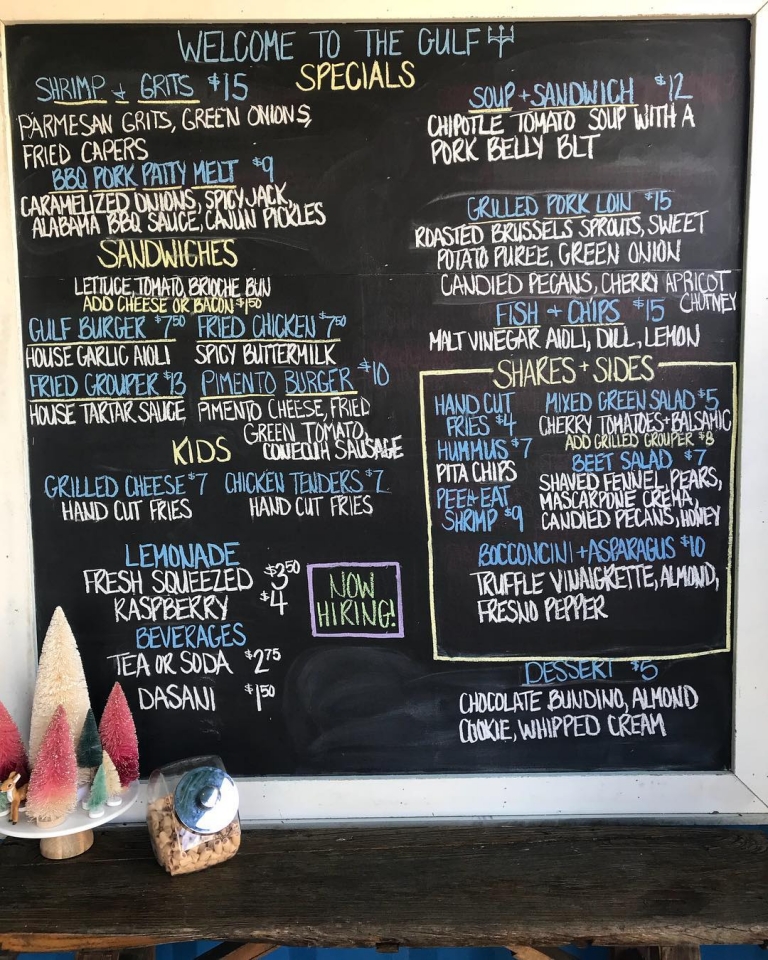 WELCOME TO THE GULF
SPECIALS
SHRIMP + GRITS $15
PARMESAN GRITS, GREEN ONIONS,
FRIED CAPERS
BBQ PORK PATTY MELT $9
CARAMELIZED ONIONS, SPICY JACK,
ALABAMA BBQ SAUCE, CAJUN PICKLES
SANDWICHES
LETTUCE, TOMATO, BRIOCHE BUN
ADD CHEESE OR BACON $1.50
GULF BURGER $7.50
HOUSE GARLIC AIOLI
FRIED CHICKEN $7.50
SPICY BUTTERMILK
FRIED GROUPER $13
HOUSE TARTAR SAUCE
PIMENTO BURGER $10
PIMENTO CHEESE, FRIED
GREEN TOMATO,
CONECUH SAUSAGE
KIDS
GRILLED CHEESE $7
HAND CUT FRIES
CHICKEN TENDERS $7
HAND CUT FRIES
LEMONADE
FRESH SQUEEZED $3.50
RASPBERRY $4
BEVERAGES
TEA OR SODA $2.75
DASANI $1.50
NOW
HIRING!
SOUP + SANDWICH $12
CHIPOTLE TOMATO SOUP WITH A
PORK BELLY BLT
GRILLED PORK LOIN $15
ROASTED BRUSSELS SPROUTS, SWEET
POTATO PUREE, GREEN ONION
CANDIED PECANS, CHERRY APRICOT
CHUTNEY
FISH + CHIPS $15
MALT VINEGAR AIOLI, DILL, LEMON
SHARES + SIDES
HAND CUT
FRIES $4
HUMMUS $7
PITA CHIPS
PEEL + EAT
SHRMP $9
MIXED GREEN SALAD $5
CHERRY TOMATOES + BALSAMIC
ADD GRILLED GROUPER $8
BEET SALAD $7
SHAVED FENNEL, PEARS,
MASCARPONE CREMA,
CANDIED PECANS, HONEY
BOCCONCINI + ASPARAGUS $10
TRUFFLE VINAIGRETTE, ALMOND,
FRESNO PEPPER
DESSERT $5
CHOCOLATE BUNDINO, ALMOND
COOKIE, WHIPPED CREAM